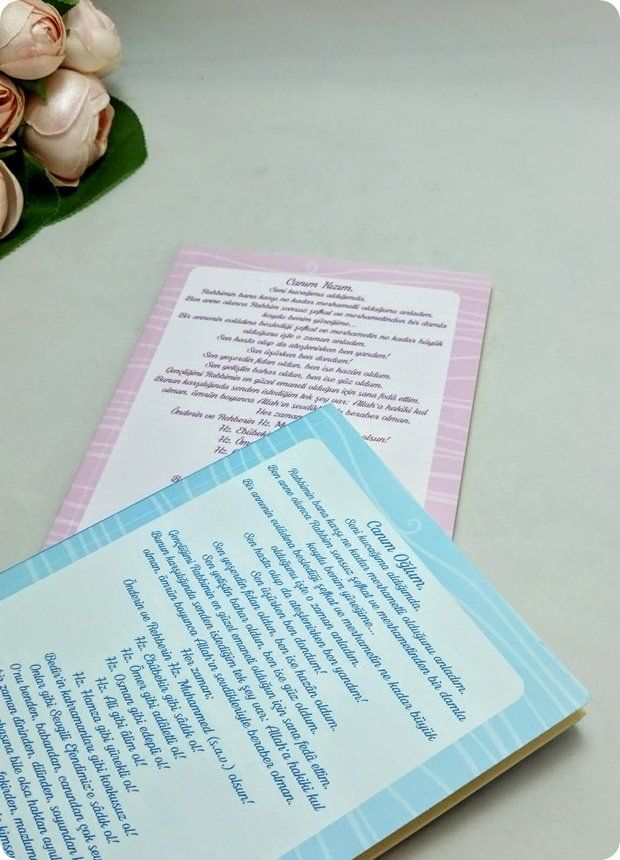 Canım Kızım,
Seni kucağıma aldığımda,
Rabbimin bana karşı ne kadar merhametli olduğunu anladım.
Ben anne olunca Rabbim sonsuz şefkat ve merhametinden bir damla
koydu benim yüreğime...
Bir annenin evlâdına beslediği şefkat ve merhametin ne kadar büyük
olduğunu işte o zaman anladım.
Sen hasta olup da ateşlenirken ben yandım!
Sen üşürken ben dondum!
Sen yeşerdin fidan oldun, ben ise hazân oldum.
Sen yetiştin bahar oldun, ben ise güz oldum.
Gençliğimi Rabbimin en güzel emaneti olduğun için sana fedâ ettim.
Bunun karşılığında senden istediğim tek şey var; Allah'a hakiki kul
olman, ömrün boyunca Allah'ın beraber olman.
Her zaman
Önderin ve Rehberin Hz. olsun!
Hz.
Hz.
Hz.
Canım Oğlum,
Seni kucağıma aldığımda,
Rabbimin bana karşı ne kadar merhametli olduğunu anladım.
Ben anne olunca Rabbim sonsuz şefkat ve merhametinden bir damla
koydu benim yüreğime...
Bir annenin evlâdına beslediği şefkat ve merhametin ne kadar büyük
olduğunu işte o zaman anladım.
Sen hasta olup da ateşlenirken ben yandım!
Sen üşürken ben dondum!
Sen yeşerdin fidan oldun, ben ise hazân oldum.
Sen yetiştin bahar oldun, ben ise güz oldum.
Gençliğimi Rabbimin en güzel emaneti olduğun için sana fedâ ettim,
Bunun karşılığında senden istediğim tek şey var; Allah'a hakiki kul
olman, ömrün boyunca Allah'ın sevdikleriyle beraber olman.
Her zaman;
Önderin ve Rehberin Hz. Muhammed (s.a.v.) olsun!
Hz. Ebûbekir gibi sâdık ol!
Hz. Ömer gibi adâletli ol!
Hz. Osman gibi edepli ol!
Hz. Ali gibi âlim ol!
Hz. Hamza gibi yürekli ol!
Bedir'in kahramanları gibi korkusuz ol!
Onlar gibi Sevgili Efendimiz'e sâdık ol!
Onu benden, babandan, canından çok sev!
bile olsa haktan
bir zaman dininden, dilinden, soyundan
fakirden, mazlum
kimse